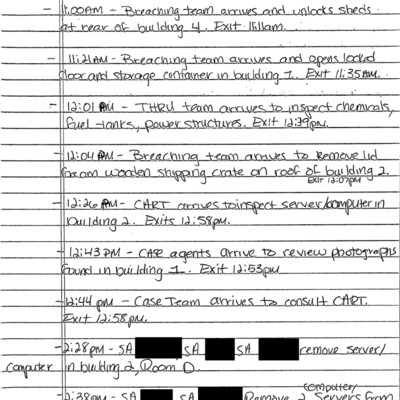 - 11:00AM - Breaching team arrives and unlocks sheds
at rear of building 4. Exit 11:11am.
- 11:21AM - Breaching team arrives and opens locked
door and storage container in building 1. Exit 11:35AM.
- 12:01 PM - THRU team arrives to inspect chemicals,
fuel tanks, power structures. Exit 12:39pm.
- 12:04 PM - Breaching team arrives to remove lid
from wooden shipping crate on roof of building 2.
Exit 12:07pm
- 12:26 PM - CART arrives to inspect server/computer in
building 2. Exits 12:58pm.
- 12:43 PM - CASE agents arrive to review photographs
found in building 1. Exit 12:53pm
- 12:44 pm - Case Team arrives to consult CART.
Exit 12:58pm.
- 2:28pm - SA SA SA remove server/
computer in building 2, Room D.
computer/
- 2:38pm - SA SA Remove 2 Servers from